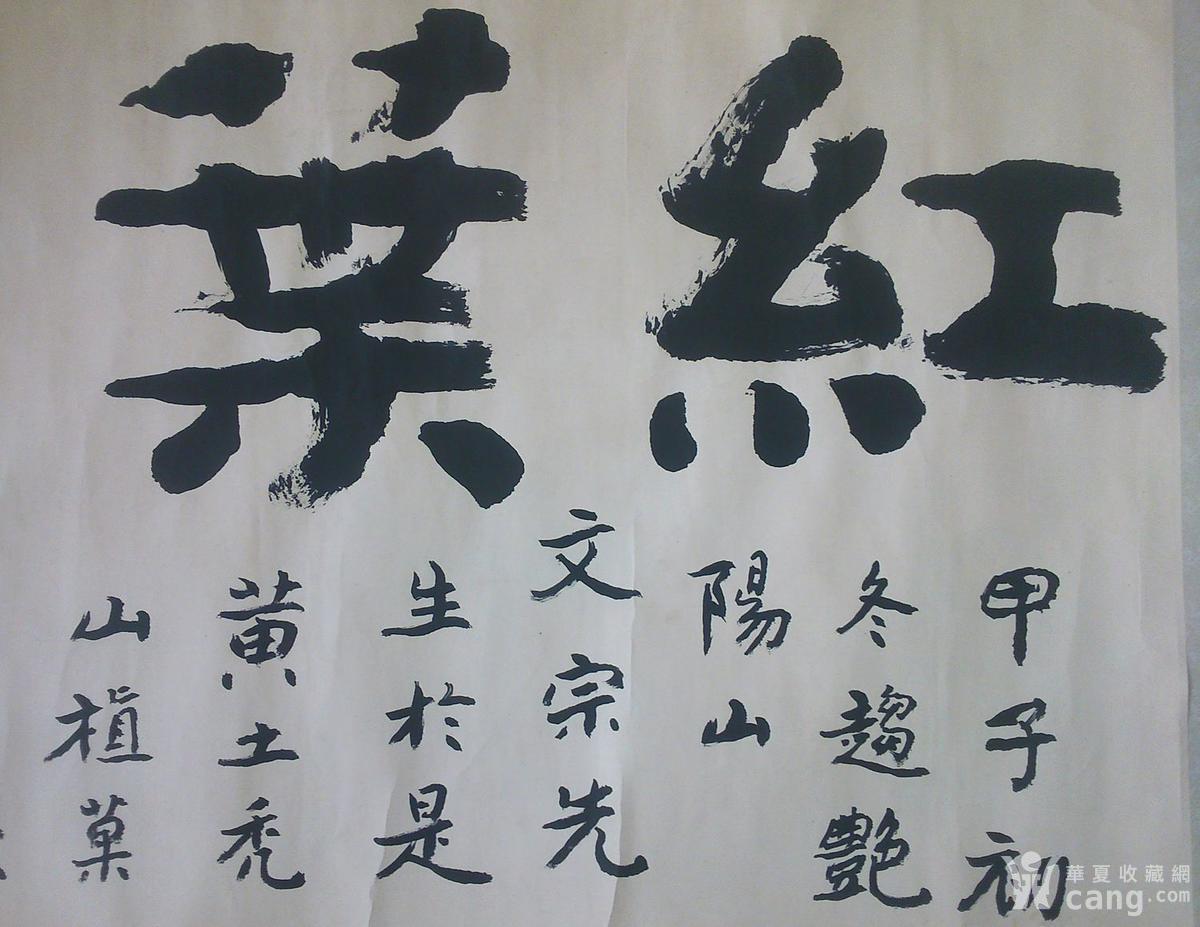 紅葉
甲子初
冬趨艷
陽山
文宗先
生於是
黃土禿
山植菓
華夏收藏網
cang.com